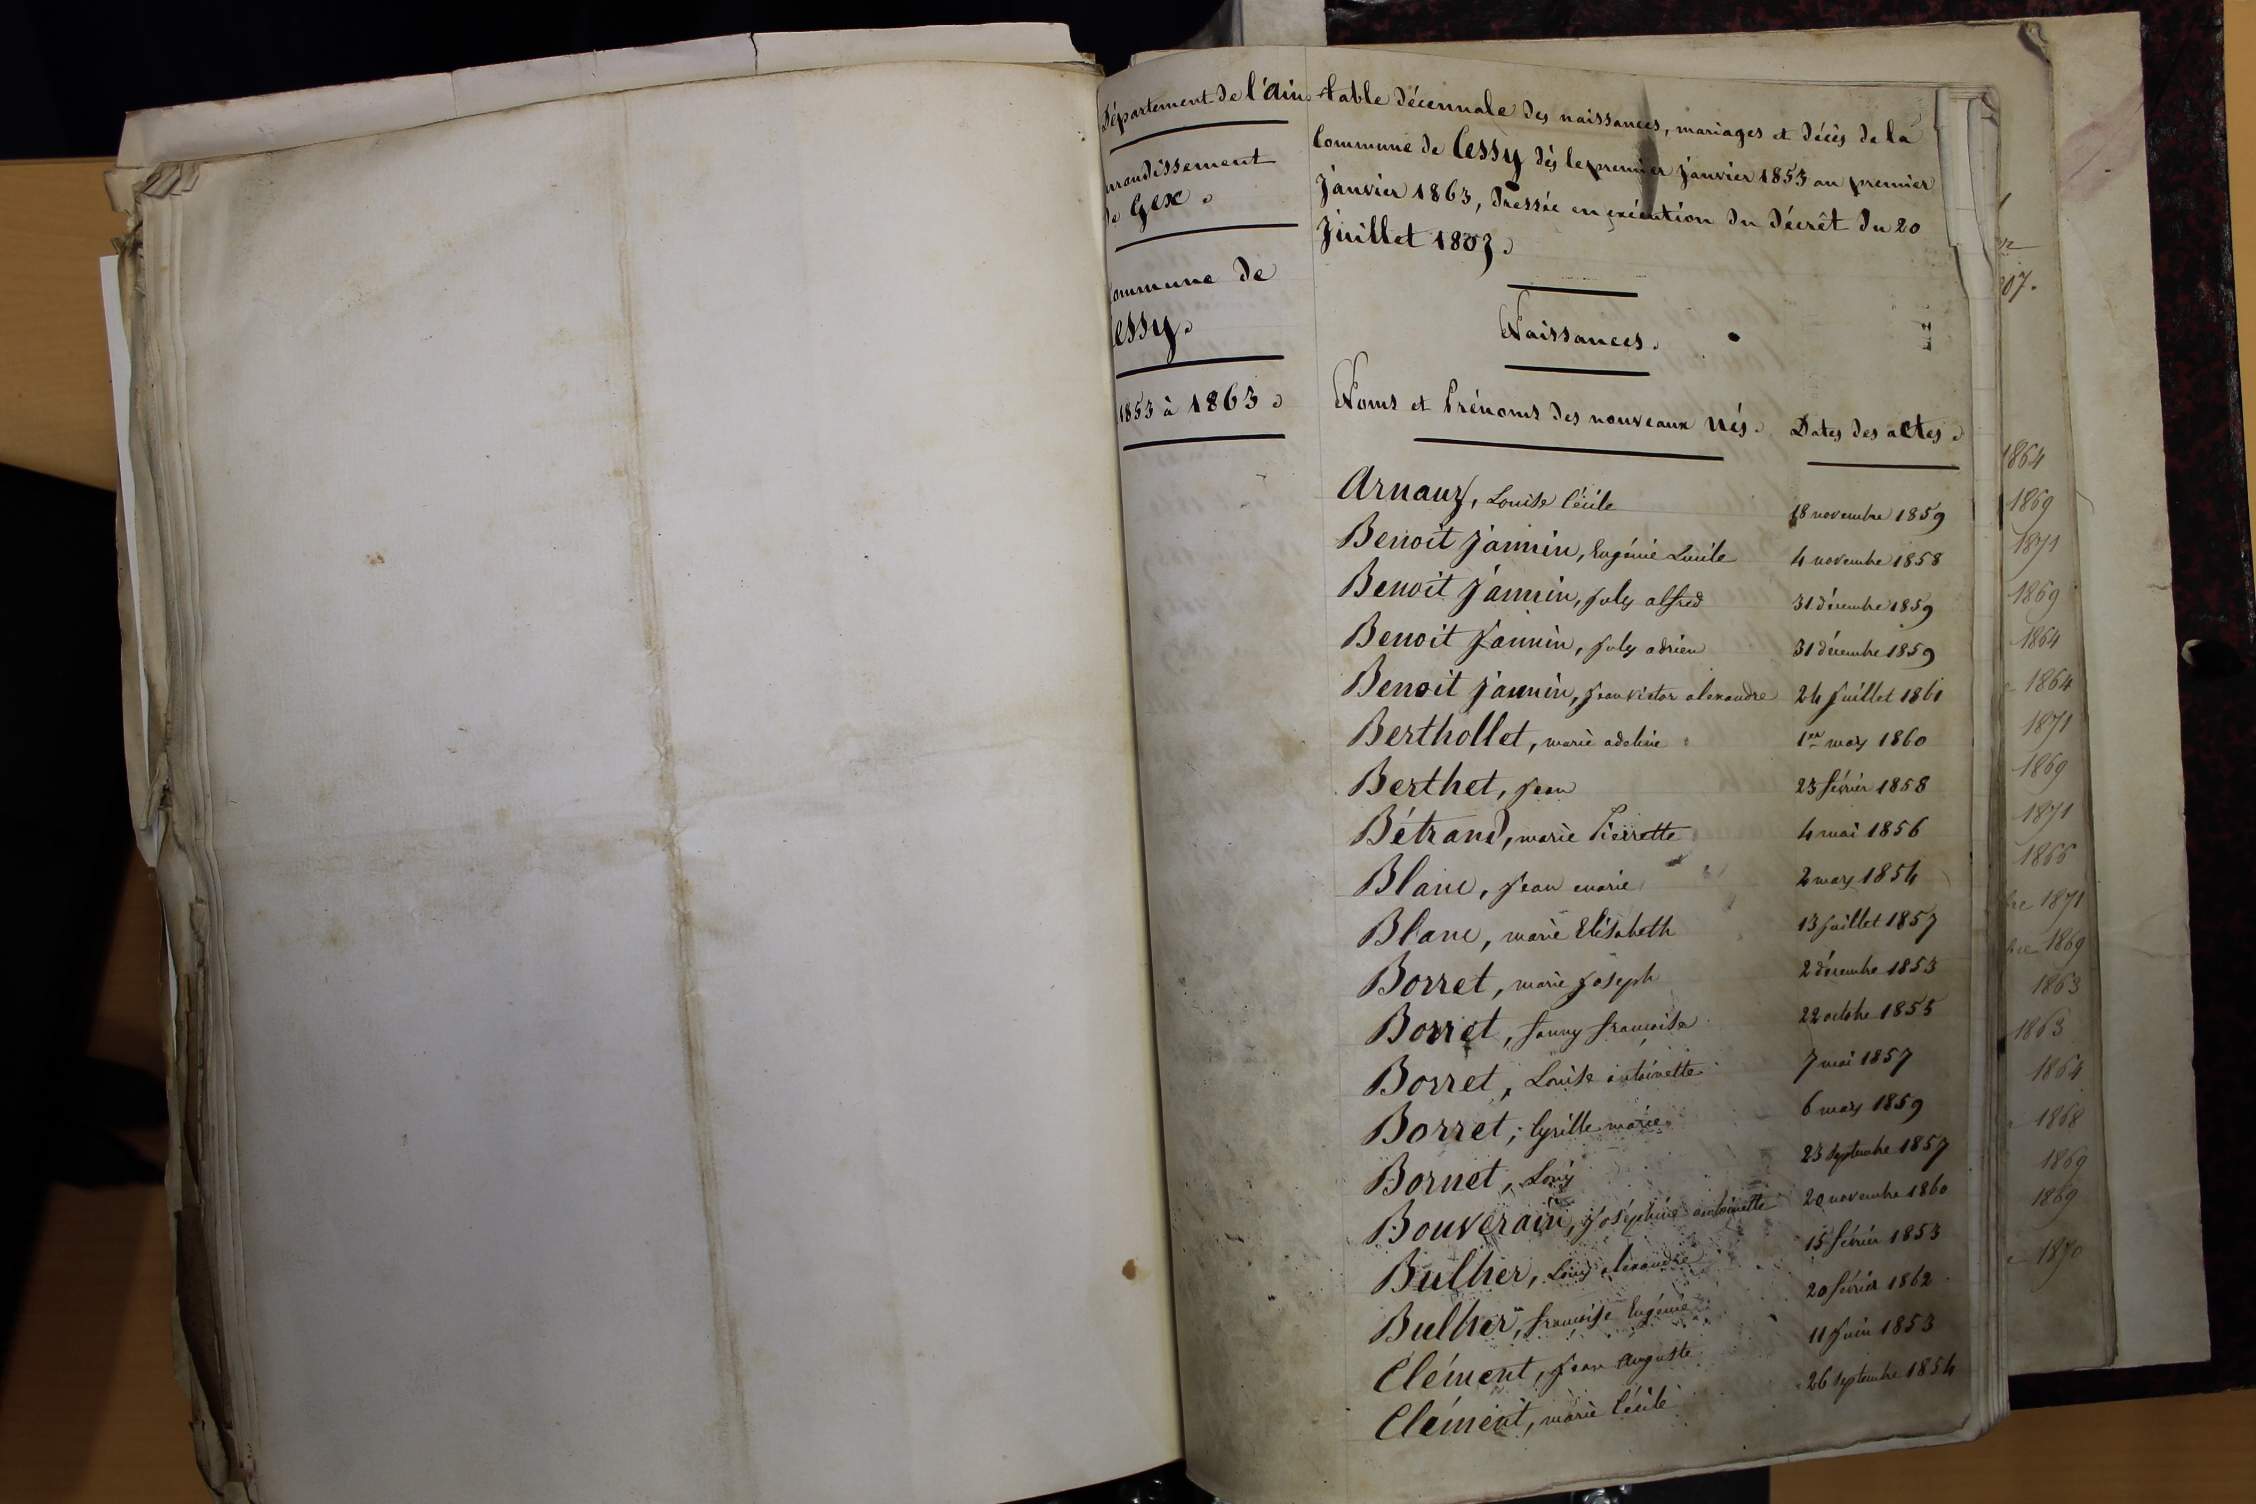 Département de l'Ain.
arrondissement
de Gex.
Commune de
Cessy.
1853 à 1863.
table décennale des naissances, mariages et décès de la
Commune de Cessy dès le premier janvier 1853 au premier
janvier 1863, dressée en exécution du décrêt du 20
juillet 1807.
Naissances.
Noms et Prénoms des nouveaux nés. Dates des actes.
Arnaux, Louise Cécile 18 novembre 1859
Benoit Jannin, Eugénie Lucile 4 novembre 1858
Benoit Jannin, jules alfred 31 décembre 1859
Benoit Jannin, jules adrien 31 décembre 1859
Benoit Jannin, jean victor alexandre 24 juillet 1861
Berthollet, marie adeline 1er mars 1860
Berthet, jean 23 février 1858
Bétrand, marie Pierrette 4 mai 1856
Blanc, jean marie 2 mars 1854
Blanc, marie Elisabeth 13 juillet 1857
Borret, marie joseph 2 décembre 1853
Borret, fanny françoise 22 octobre 1855
Borret, Louise antoinette 7 mai 1857
Borret, Cyrille marie 6 mars 1859
Bornet, Louis 23 septembre 1857
Bouverain, joséphine antoinette 20 novembre 1860
Bulher, Louis alexandre 15 février 1853
Bulher, françoise Eugénie 20 février 1862
Clément, jean Auguste 11 juin 1853
Clément, marie Cécile 26 septembre 1854
07.
1864
1869
1871
1869
1864
1864
1871
1869
1871
1866
bre 1871
bre 1869
1863
1863
1864
1868
1869
1869
1870